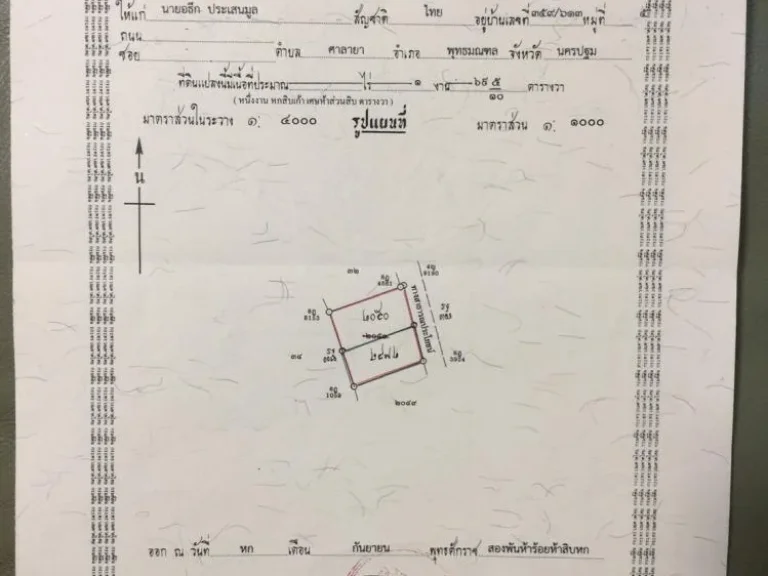 ให้แก่ นายอธึก ประเสนมูล สัญชาติ ไทย อยู่บ้านเลขที่ ๓๕๙/๖๑๓ หมู่ที่ ๕
ถนน
ซอย ตำบล ศาลายา อำเภอ พุทธมณฑล จังหวัด นครปฐม
ที่ดินแปลงนี้มีเนื้อที่ประมาณ ไร่ ๑ งาน ๖๙ ๕/๑๐ ตารางวา
( หนึ่งงาน หกสิบเก้า เศษห้าส่วนสิบ ตารางวา )
มาตราส่วนในระวาง ๑: ๔๐๐๐ รูปแผนที่ มาตราส่วน ๑: ๑๐๐๐
น
๓๒
๒๐๕๐
ทางสาธารณประโยชน์
๓๔
๒๔๗๒
๒๐๔๙
ออก ณ วันที่ หก เดือน กันยายน พุทธศักราช สองพันห้าร้อยห้าสิบหก